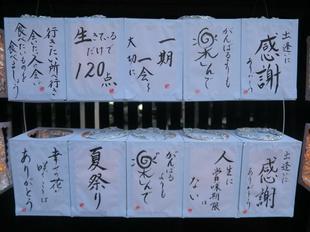 出逢いに
感謝
ありがとう
がんばるよりも
楽しんで
一期
一会を
大切に
生きているだけで
120点
行きたい所へ行き
会いたい人に会い
食べたいものを
食べましょう
出逢いに
感謝
ありがとう
人生に
賞味期限は
ない
がんばる
よりも
楽しんで
夏祭り
幸せの花
ありがとう